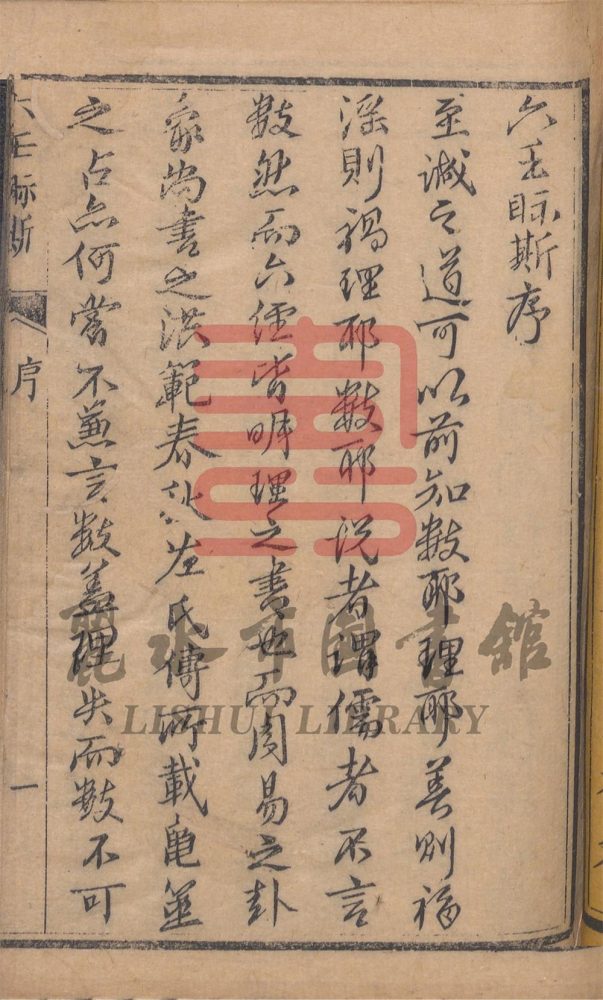 六壬眎斯序
至誠之道可以前知數耶理耶善則福
淫則禍理耶數耶说者謂儒者不言
數然而六經皆明理之書也而周易之卦
象尚書之洪範春秋左氏傳所載龜筮
之占亦何嘗不兼言數蓋理失而數不可
六壬眎斯
序
一
麗水市圖書館
LISHUI LIBRARY